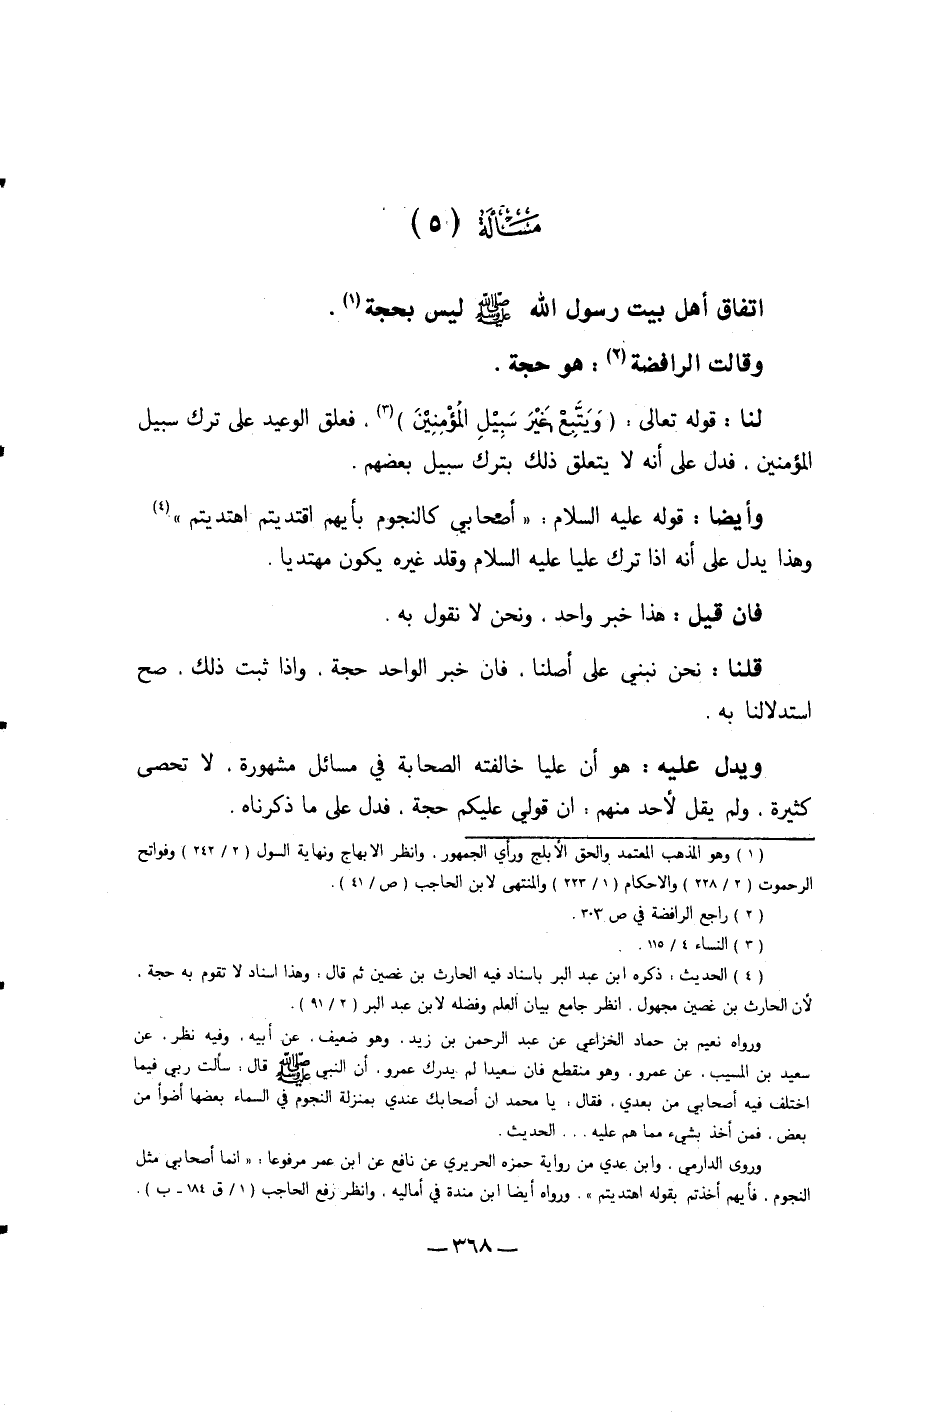 مسألة ( ٥ )
اتفاق أهل بيت رسول الله ﷺ ليس بحجة (١) .
وقالت الرافضة (٢) : هو حجة .
لنا : قوله تعالى : ( وَيَتَّبِعْ غَيْرَ سَبِيْلِ الْمُؤْمِنِيْنَ ) (٣) ، فعلق الوعيد على ترك سبيل
المؤمنين ، فدل على أنه لا يتعلق ذلك بترك سبيل بعضهم .
وأيضا : قوله عليه السلام : « أصحابي كالنجوم بأيهم اقتديتم اهتديتم » (٤)
وهذا يدل على أنه اذا ترك عليا عليه السلام وقلد غيره يكون مهتديا .
فان قيل : هذا خبر واحد ، ونحن لا نقول به .
قلنا : نحن نبني على أصلنا ، فان خبر الواحد حجة ، واذا ثبت ذلك ، صح
استدلالنا به .
ويدل عليه : هو أن عليا خالفته الصحابة في مسائل مشهورة ، لا تحصى
كثيرة ، ولم يقل لأحد منهم : ان قولي عليكم حجة ، فدل على ما ذكرناه .
( ١ ) وهو المذهب المعتمد والحق الأبلج ورأي الجمهور ، وانظر الابهاج ونهاية السول ( ٢ / ٢٤٢ ) وفواتح
الرحموت ( ٢ / ٢٢٨ ) والاحكام ( ١ / ٢٢٣ ) والمنتهى لابن الحاجب ( ص / ٤١ ) .
( ٢ ) راجع الرافضة في ص ٣٠٣ .
( ٣ ) النساء ٤ / ١١٥ .
( ٤ ) الحديث : ذكره ابن عبد البر باسناد فيه الحارث بن غصين ثم قال : وهذا اسناد لا تقوم به حجة ،
لأن الحارث بن غصين مجهول . انظر جامع بيان العلم وفضله لابن عبد البر ( ٢ / ٩١ ) .
ورواه نعيم بن حماد الخزاعي عن عبد الرحمن بن زيد ، وهو ضعيف ، عن أبيه ، وفيه نظر ، عن
سعيد بن المسيب ، عن عمرو ، وهو منقطع فان سعيدا لم يدرك عمرو ، أن النبي ﷺ قال : سألت ربي فيما
اختلف فيه أصحابي من بعدي ، فقال : يا محمد ان أصحابك عندي بمنزلة النجوم في السماء بعضها أضوأ من
بعض ، فمن أخذ بشيء مما هم عليه . . . الحديث .
وروى الدارمي ، وابن عدي من رواية حمزه الحريري عن نافع عن ابن عمر مرفوعا : « انما أصحابي مثل
النجوم ، فأيهم أخذتم بقوله اهتديتم » . ورواه أيضا ابن مندة في أماليه ، وانظر رفع الحاجب ( ١ / ق ١٨٤ - ب ) .
— ٣٦٨ —